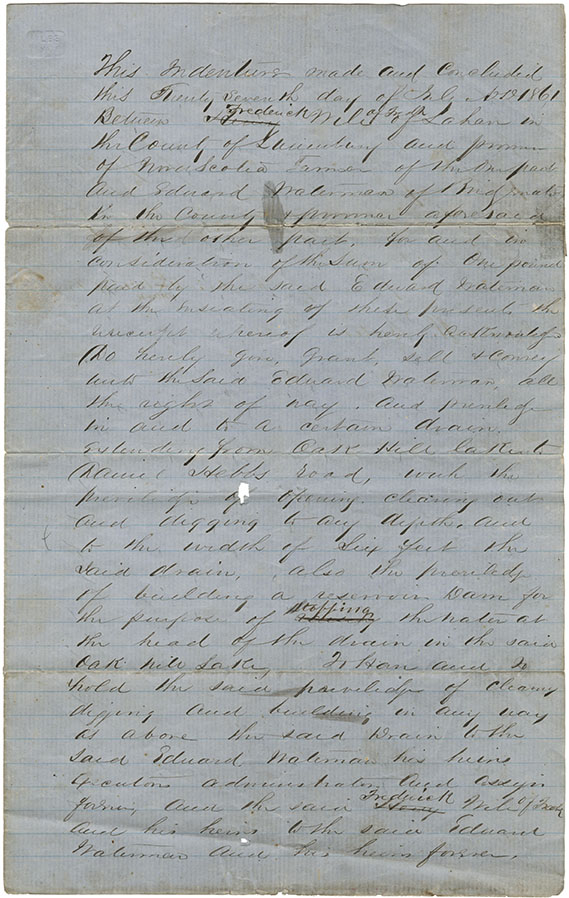 This Indenture made and Concluded
this Twenty Seventh day of July AD 1861
Between Frederick Wile of Lahave in
the County of Lunenburg and province
of Nova Scotia Farmer of the One part
and Edward Waterman of Bridgewater
in the County & province aforesaid
of the other part, for and in
Consideration of the Sum of One pound
paid by the said Edward Waterman
at the Ensealing of these presents the
receipt whereof is hereby
Do hereby give, Grant, sell & Convey
unto the Said Edward Waterman, all
the right of way, and privilidge
in and to a certain drain
Extending from Oak Hill Lake to
Daniel Hebbs road, with the
previlidge of opening, clearing out
and digging to any depth, and
to the width of Six feet the
said drain, also the previlidge
of building a reservoir Dam for
the purpose of stopping the water at
the head of the drain in the said
Oak hill Lake, To Have and to
hold the said priviledge of clearing
diging and building in any way
as above the said Drain to the
said Edward Waterman his heirs
Executors administrators and assigns
forever, and the said Frederick Wile
and his heirs to the said Edward
Waterman and his heirs forever.